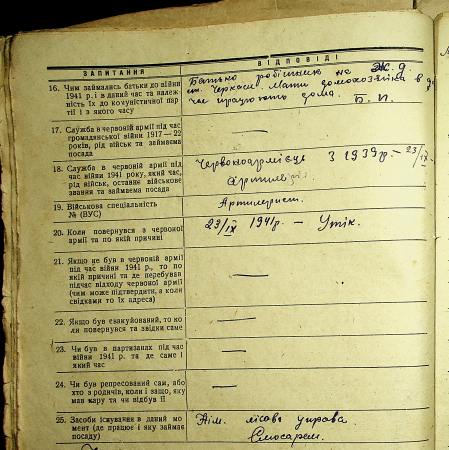 ЗАПИТАННЯ
ВІДПОВІДІ
16. Чим займались батьки до війни
1941 р. і в даний час та належ-
ність їх до комуністичної пар-
тії і з якого часу
Батько робітник на Ж. д.
ст. Черкаси. Мати домохозяйка в
час працюють дома. Б. П.
17. Служба в червоній армії під час
громадянської війни 1917 — 22
років, рід військ та займаєма
посада
—
18. Служба в червоній армії під
час війни 1941 року, який час,
рід військ, останнє військове
звання та займаєма посада
Червоноармієць з 1939р. — 23/IX
19. Військова спеціальність
№ (ВУС)
Артилерист.
20. Коли повернувся з червоної
армії та по якій причині
23/IX 1941р. — Утік.
21. Якщо не був в червоній армії
під час війни 1941 р., то по
якій причині та де перебував
підчас відходу червоної армії
(чим може підтвердити, а коли
свідками то їх адреса)
—
22. Якщо був евакуйований, то ко
ли повернувся та звідки саме
—
23. Чи був в партизанах під час
війни 1941 р. та де саме і
який час
—
24. Чи був репресований сам, або
хто з родичів, коли і защо, яку
мав кару та чи відбув її
—
25. Засоби існування в даний мо
мент (де працює і яку займає
посаду)
лісова управа
Слюсарем.